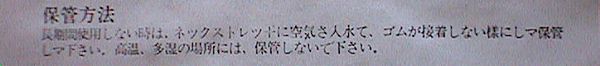 保管方法
長期間使用しない時は、ネックストレッチに空気さ入水て、ゴムが接着しない様にしマ保管
しマ下さい。高温、多湿の場所には、保管しないで下さい。